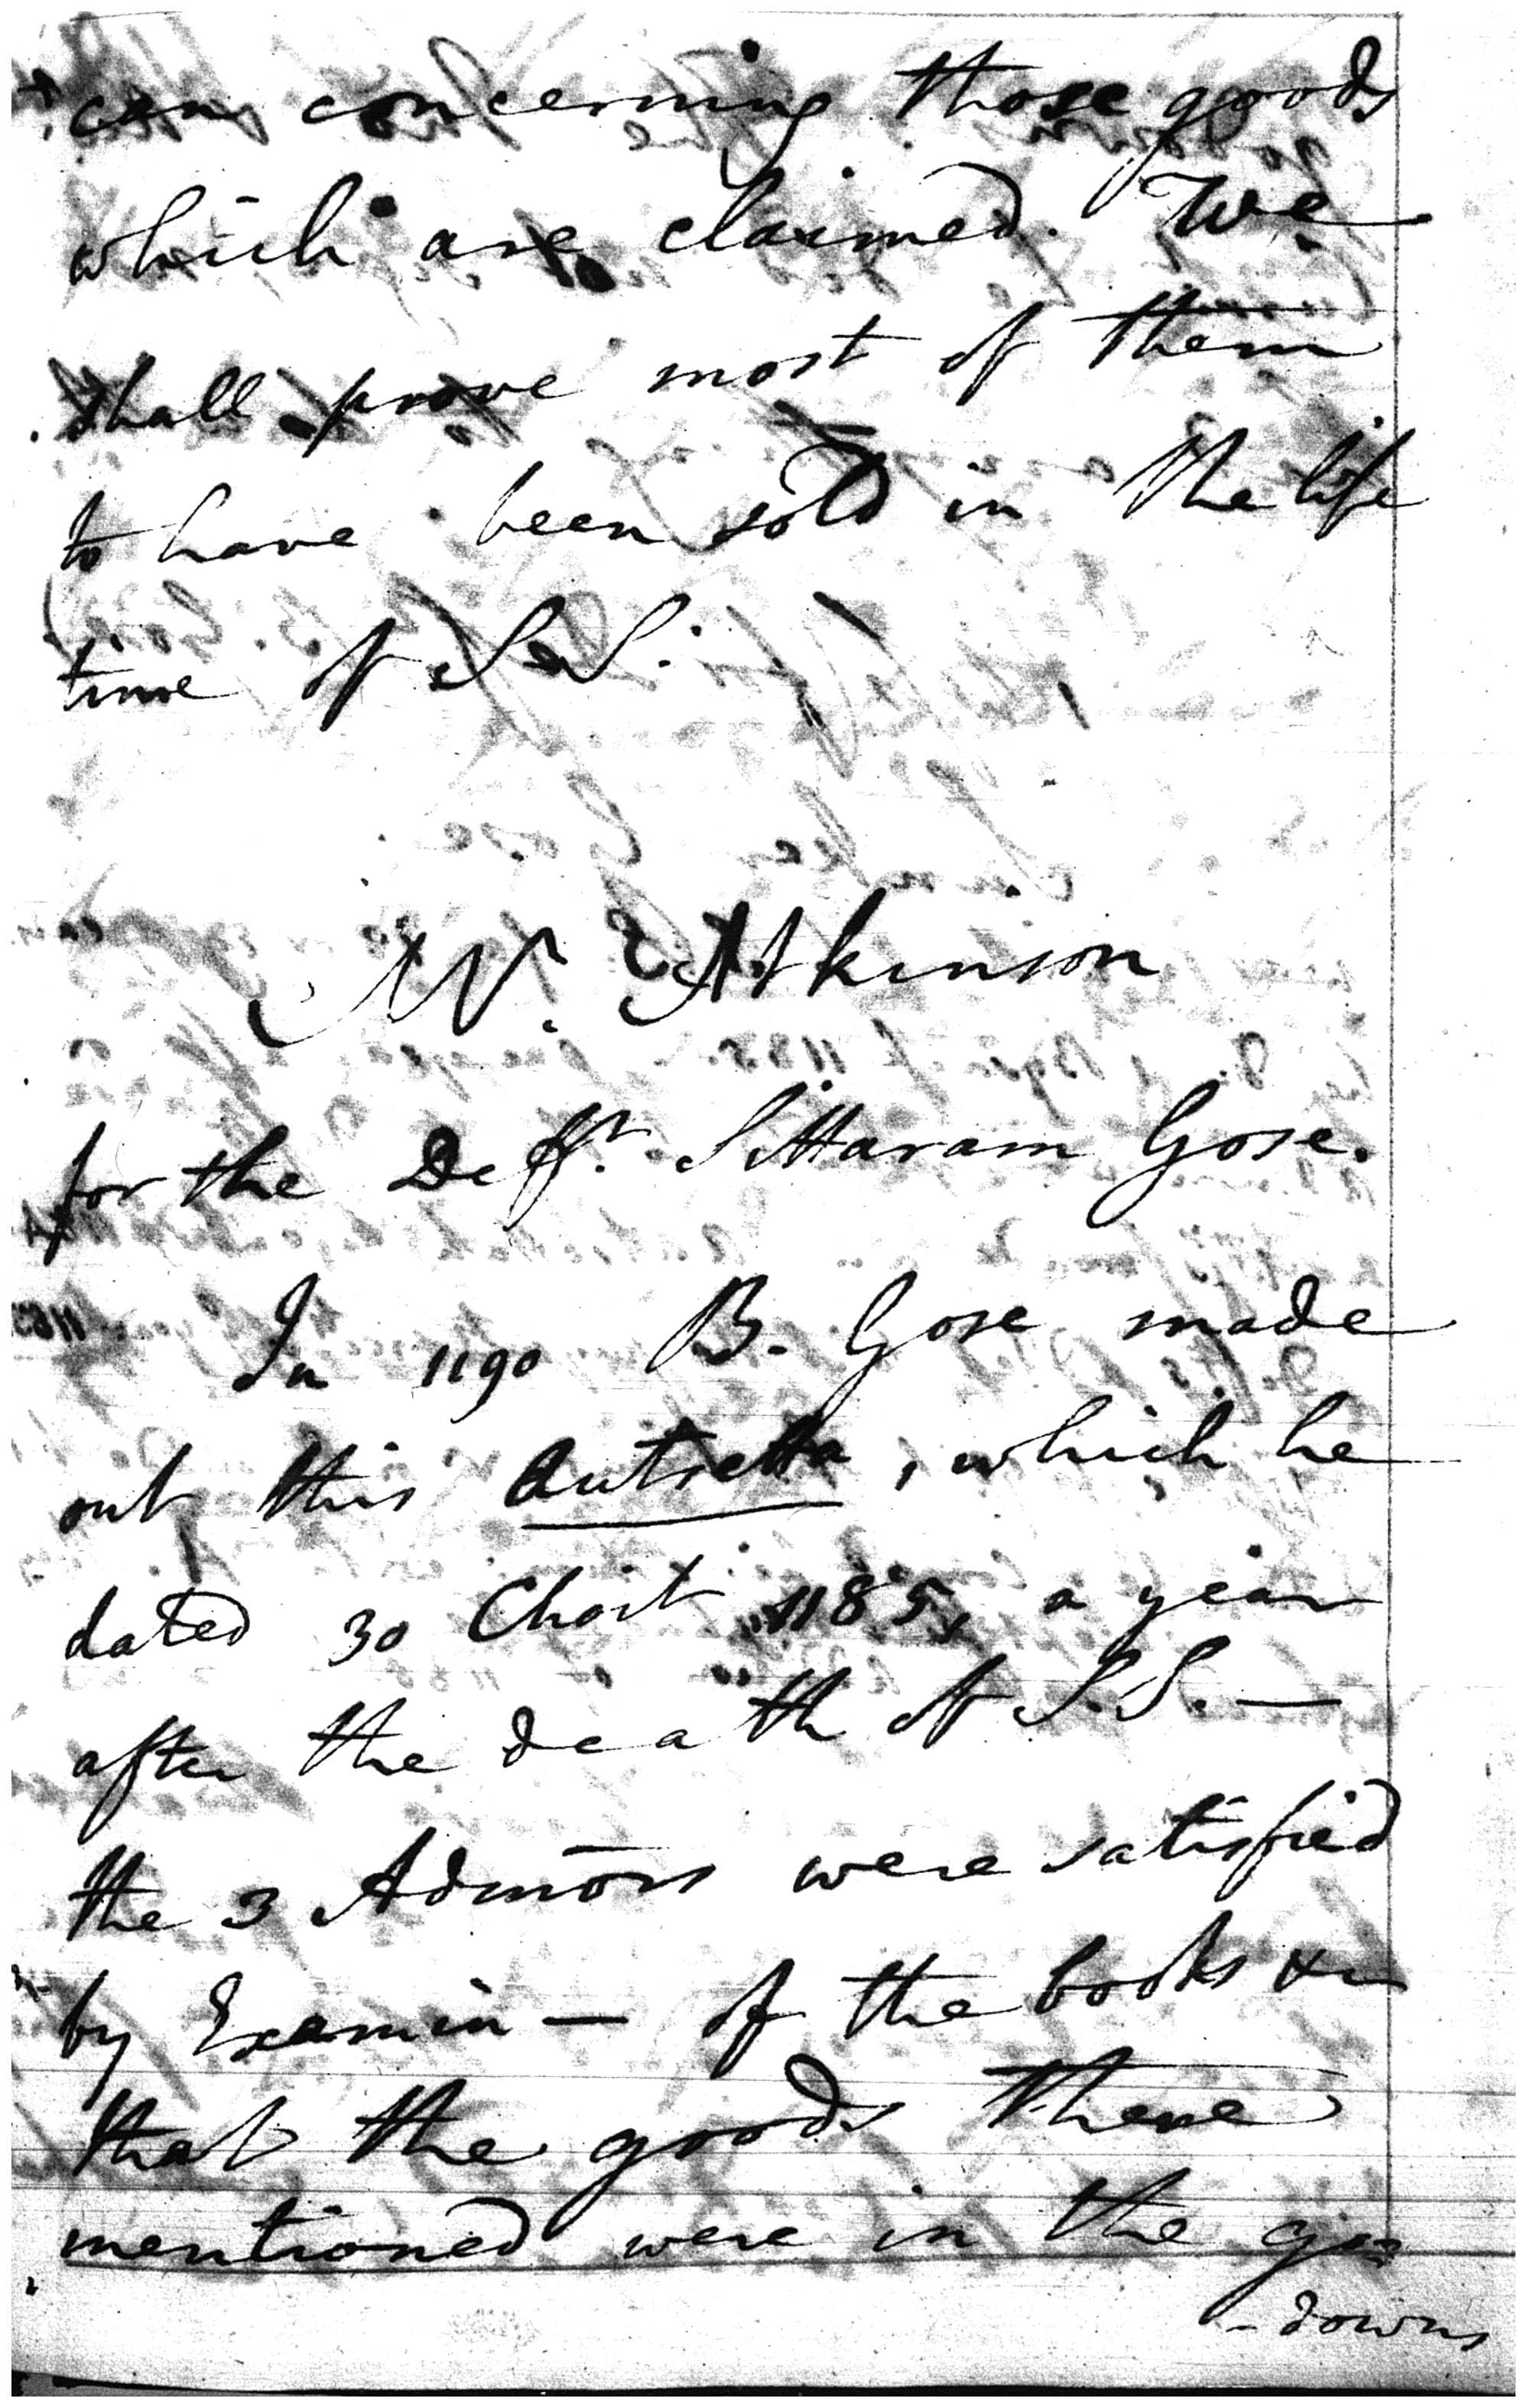 can concerning those goods
which are claimed. We
shall prove most of them
to have been sold in the life
time of S.S.
Mr. Atkinson
for the Defft. Sittaram Gose.
In 1190 B. Gose made
out this autretta, which he
dated 30 Choit 1185, a year
after the death of S.S. —
the 3 Admors were satisfied
by Examin— of the books &c
that the goods there
mentioned were in the go=
-downs